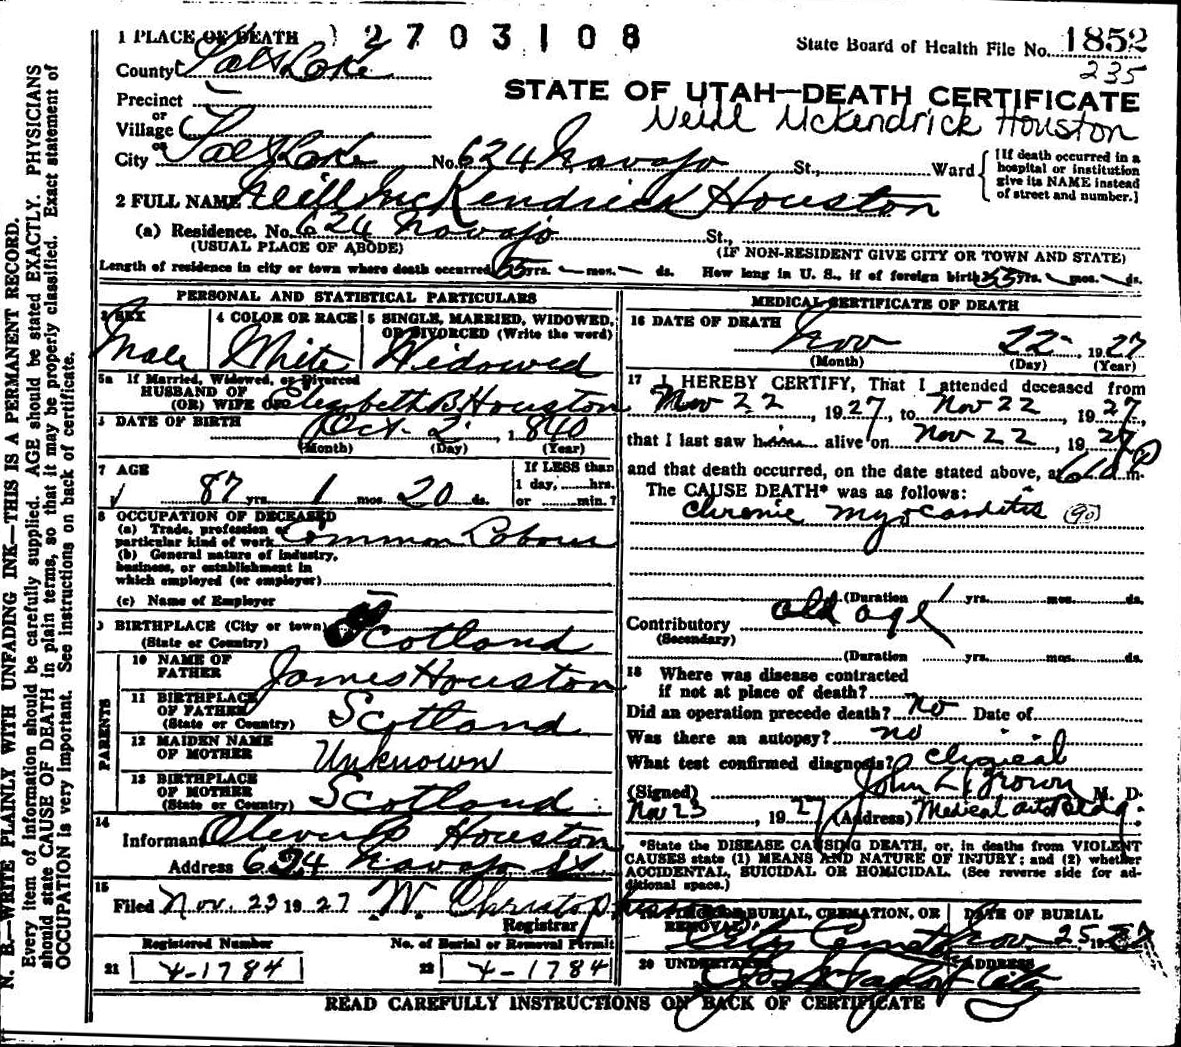 1 PLACE OF DEATH ) 2 7 0 3 1 0 8
State Board of Health File No. 1852
235
County Salt Lake
STATE OF UTAH—DEATH CERTIFICATE
Precinct
or
Village
Neill McKendrick Houston
City Salt Lake No. 624 Navajo St., Ward
[If death occurred in a hospital or institution give its NAME instead of street and number.]
2 FULL NAME Neill McKendrick Houston
(a) Residence. No. 624 Navajo St.,
(USUAL PLACE OF ABODE) (IF NON-RESIDENT GIVE CITY OR TOWN AND STATE)
Length of residence in city or town where death occurred 55 yrs. — mos. — ds. How long in U. S., if of foreign birth 55 yrs. — mos. — ds.
PERSONAL AND STATISTICAL PARTICULARS
3 SEX
Male
4 COLOR OR RACE
White
5 SINGLE, MARRIED, WIDOWED,
OR DIVORCED (Write the word)
Widowed
5a If Married, Widowed, or Divorced
HUSBAND OF
(OR) WIFE OF Elizabeth B Houston
DATE OF BIRTH Oct. 2, 1840
(Month) (Day) (Year)
7 AGE
87 yrs. 1 mos. 20 ds.
If LESS than
1 day, hrs.
or min.?
8 OCCUPATION OF DECEASED
(a) Trade, profession
particular kind of work Common Laborer
(b) General nature of industry,
business, or establishment in
which employed (or employer)
(c) Name of Employer
9 BIRTHPLACE (City or town)
(State or Country) Scotland
PARENTS
10 NAME OF
FATHER James Houston
11 BIRTHPLACE
OF FATHER
(State or Country) Scotland
12 MAIDEN NAME
OF MOTHER Unknown
13 BIRTHPLACE
OF MOTHER
(State or Country) Scotland
14
Informant Houston
Address 624 Navajo St
15
Filed Nov. 23 1927 W. Christopherson
Registrar
Registered Number
21 4-1784
No. of Burial or Removal Permit
22 4-1784
MEDICAL CERTIFICATE OF DEATH
16 DATE OF DEATH
Nov 22, 1927
(Month) (Day) (Year)
17 I HEREBY CERTIFY, That I attended deceased from
Nov 22, 1927, to Nov 22 1927,
that I last saw him alive on Nov 22, 1927
and that death occurred, on the date stated above, at 610 P m.
The CAUSE DEATH* was as follows:
Chronic Myocarditis (90)
(Duration 1 yrs. mos. ds.
Contributory old age
(Secondary)
(Duration yrs. mos. ds.
18 Where was disease contracted
if not at place of death?
Did an operation precede death? no Date of
Was there an autopsy? no
What test confirmed diagnosis? Clinical
(Signed) John Z Brown M. D.
Nov 23, 1927 (Address) Medical Arts Bldg.
*State the DISEASE CAUSING DEATH, or, in deaths from VIOLENT
CAUSES state (1) MEANS AND NATURE OF INJURY; and (2) whether
ACCIDENTAL, SUICIDAL OR HOMICIDAL. (See reverse side for ad-
ditional space.)
19 PLACE OF BURIAL, CREMATION, OR
REMOVAL?
City Cemetery
DATE OF BURIAL
Nov. 25 1927
20 UNDERTAKER
Taylor
ADDRESS
City
READ CAREFULLY INSTRUCTIONS ON BACK OF CERTIFICATE
N. B.—WRITE PLAINLY WITH UNFADING INK—THIS IS A PERMANENT RECORD.
Every item of information should be carefully supplied. AGE should be stated EXACTLY. PHYSICIANS
should state CAUSE OF DEATH in plain terms, so that it may be properly classified. Exact statement of
OCCUPATION is very important. See instructions on back of certificate.